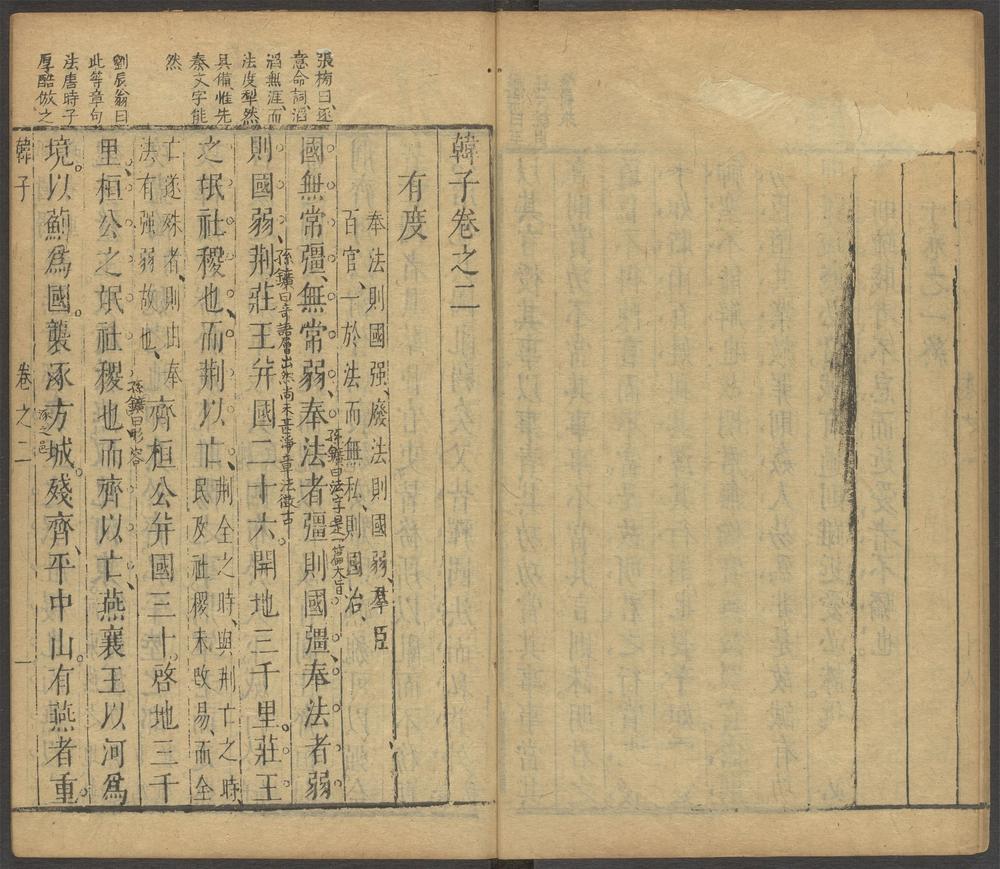 韓子卷之二
有度
奉法則國强、廢法則國弱、羣臣
百官、一於法而無私、則國治、
孫鑛曰法字是一篇大旨
國無常彊、無常弱、奉法者彊則國彊、奉法者弱
孫鑛曰奇語層出然尚未甚淨章法微古
則國弱、荆莊王幷國二十六、開地三千里。莊王
之氓社稷也、而荆以亡、
荆全之時、與荆亡之時、
民及社稷未改易、而全
亡遂殊者、則由奉
法有强弱故也、
齊桓公幷國三十。啓地三千
孫鑛曰形容
里、桓公之氓社稷也而齊以亡、燕襄王以河爲
涿之邑
境。以薊爲國。襲涿方城。殘齊。平中山。有燕者重。
張榜曰逐
意命詞滔
滔無涯、而
法度犁然
具備、惟先
秦文字能
然
劉辰翁曰
此等章句
法唐時子
厚酷倣之
韓子
卷之二
一